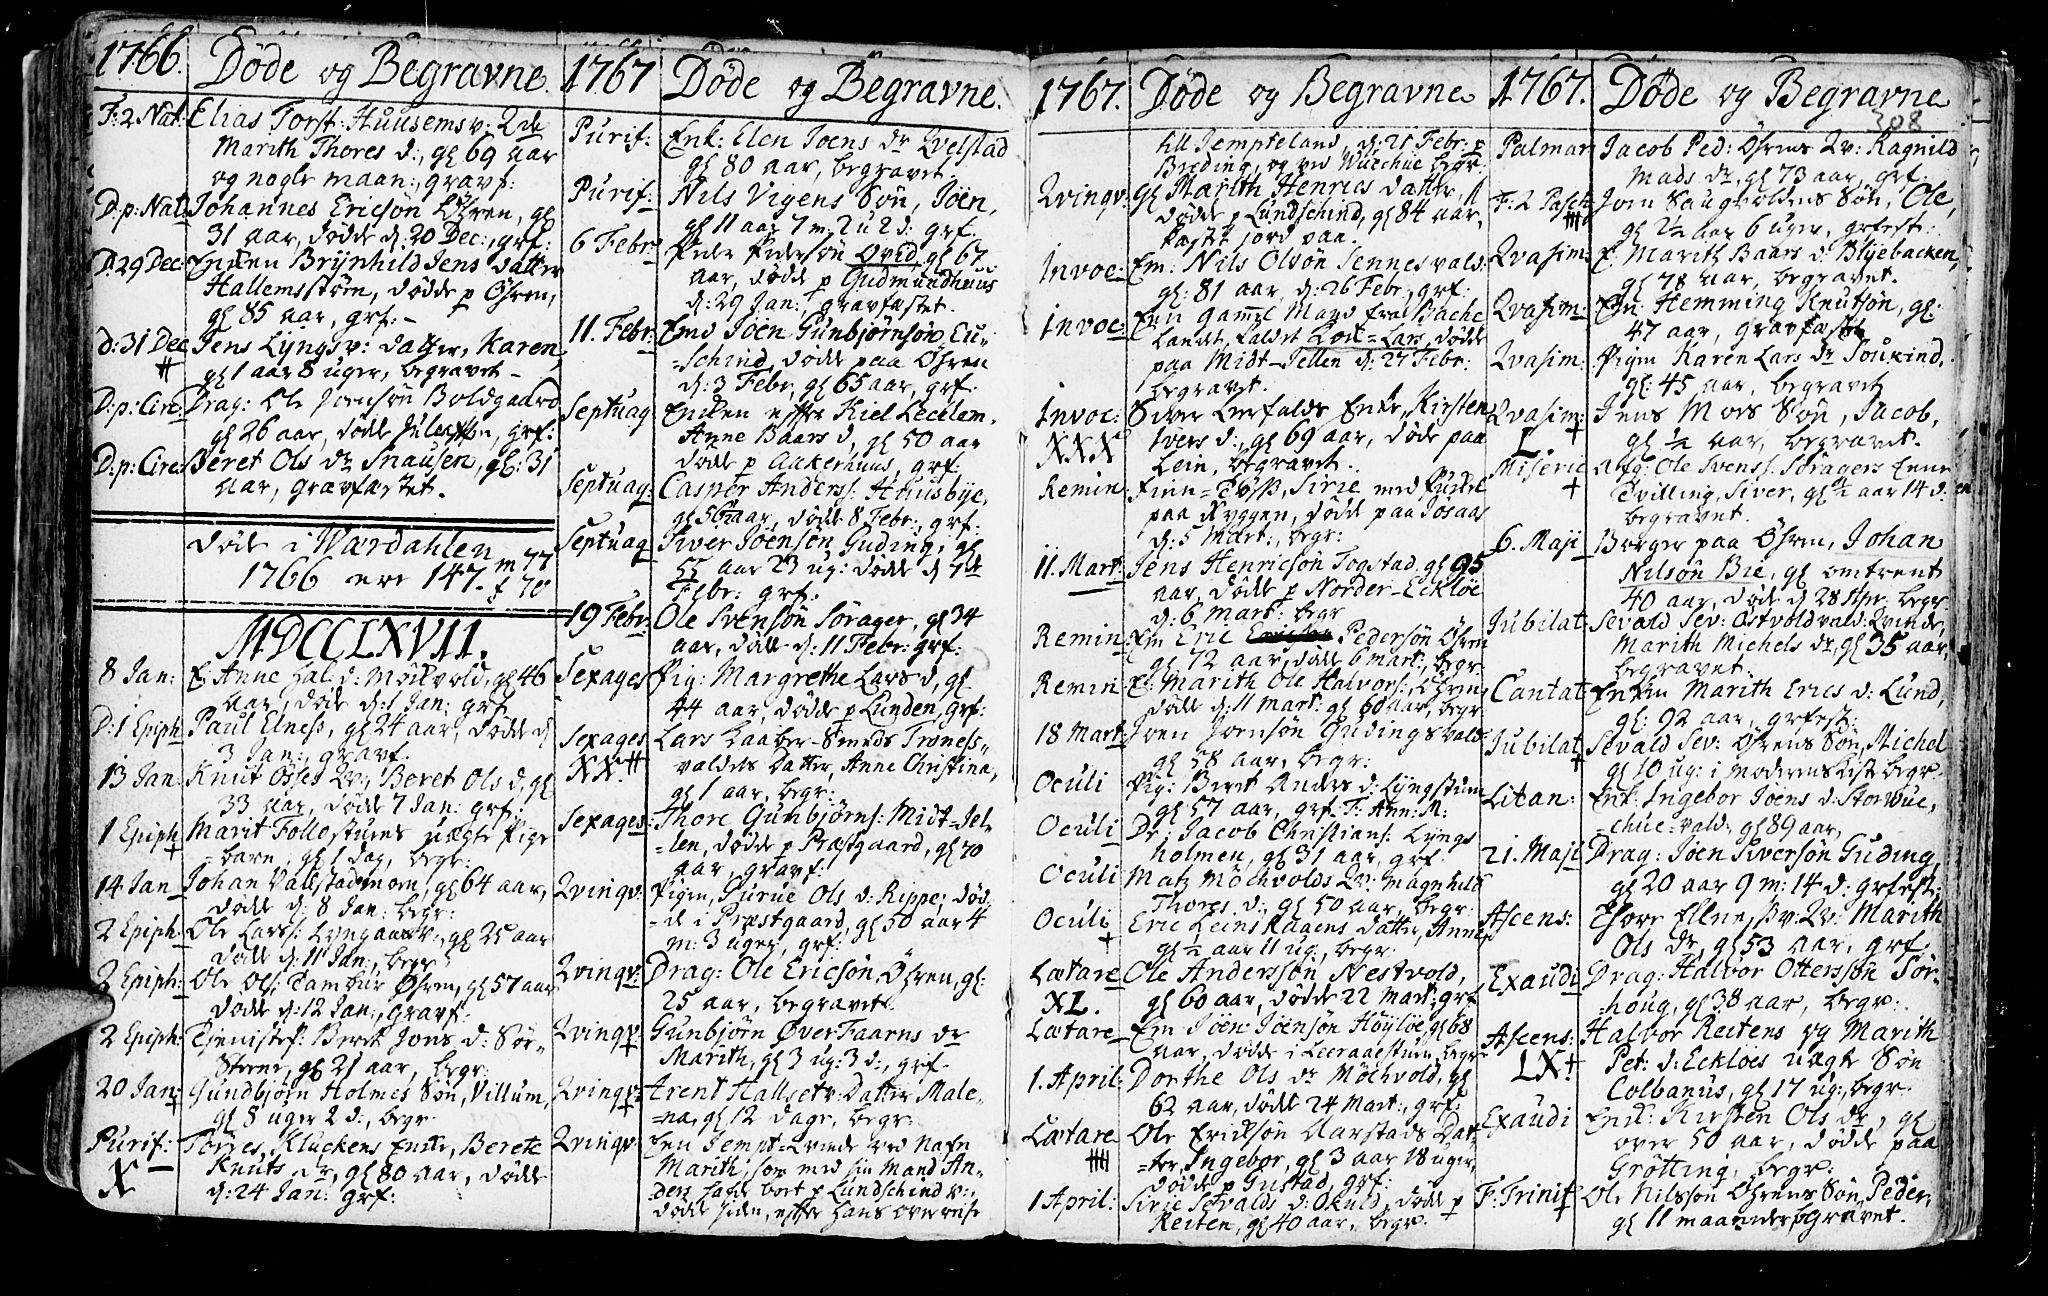 1766. Døde og Begravne.
F: 2 Nat: Elias Torst: Huusems v: Qde
Marith Thores d:, gl 69 aar
og nogle maan:, gravf:
D: p: Nat: Johannes Ericsön Öhren, gl
31 aar, døde d: 20 Dec:, grf:
D: 29 Dec: Enken Brynhild Jens datter
Hallemsstörn, døde p Öhren,
gl 85 aar, grf:
d: 31 Dec Jens Lyngs v: datter, Karen,
gl 1 aar 8 uger, begravet
D: p: Circ: Drag: Ole Jonsön Boldgaard
gl 26 aar, døde Juleaften, grf:
D: p: Circ: Beret Ols dr Snausen, gl: 31
aar, gravfæstet.
Døde i Wærdahlen m 77
1766 ere 147. f 70
MDCCLXVII.
8 Jan: E Anne Hal: d: Möchvold, gl 46
aar, døde d: 1 Jan: grf
D: 1 Epiph Paul Elness, gl 24 aar, døde d
3 Jan:, gravf.
13 Jan: Knut Öss Qv:, Beret Ols d, gl
33 aar, døde 7 Jan: grf.
1 Epiph Marit Follostuens uægte Pige
barn, gl 1 dag, begr:
14 Jan Johan Vallstadmoen, gl 64 aar,
døde d: 8 Jan: begr:
2 Epiph: Ole Larss: Lyngaas v: gl 25 aar
døde d: 11 Jan:, begr
2 Epiph: Ole Ols: Tambur Öhren, gl 57 aar
døde d: 12 Jan:, gravf:
2 Epiph: Tjenistf: Beret Jons d: Sör-
Steene, gl 21 aar, begr:
20 Jan: Gundbjörn Holmes Sön, Villum,
gl 8 uger 2 d:, begr
Purif: Torres Kluckens Enke, Berete
X Knuts dr, gl 80 aar, døde
d: 24 Jan: grf:
1767 Døde og Begravne.
Purif: Enk: Elen Joens dr Qvelstad
gl 80 aar, begravet.
Purif: Nils Vigens Sön, Jöen,
gl 11 aar 7 m: 2 u 2 d: grf
6 Febr: Peder Pedersön Qvid, gl 67
aar, døde p Gudmundhuus
d: 29 Jan:, gravfæstet.
11. Febr: Emd Jöen Gunbjörnsön Eu-
-schind, døde paa Öhren
d: 3 Febr, gl 65 aar, grf.
Septuag: Enken efter Kiel Lecklem,
Anne Baars d, gl 50 aar
døde p Aakerhuus, grf:
Septuag: Casper Anderss: Huusbye,
gl 56½ aar, døde 8 Febr:, grf:
Septuag Siver Jöensön Guding, gl
55 aar 23 ug: døde d 7de
Febr: grf:
19 Febr: Ole Svensön Sörager, gl 34
aar, døde d: 11 Febr: grf:
Sexages Pig: Margrethe Lars d, gl
44 aar, døde p Lunden, grf:
Sexages Lars Laaber-Smeds Troness-
XX. valdets Datter, Anne Christina,
gl 1 aar, begr:
Sexages: Thore Gunbjörns: Midt-Jel-
-len, døde p Præstgaard, gl 70
aar, gravf:
Qvinqv: Pigen, Purue Ols d: Rippe, död-
-de i Præstgaard, gl 50 aar 4
m: 3 uger, grf:
Qvinqv: Drag: Ole Ericsön Öhren, gl:
25 aar, begravet.
Qvinqv: Gunbjörn Over Faarns dr
Marith, gl 3 ug: 3 d:, grf.
Qvinqv: Arent Hallset v: Datter Male-
=na, gl 12 dage, begr:
Qvinqv: En Jempt-Qvinde ved Nafn
Marith, som med sin Mand An-
ders hafde bort p Lundschind v:,
døde siden, efter hans overreise
1767. Døde og Begravne
till Jempteland, d: 21 Febr: p
Breding, og ved Wuechue begr.
Qvinqv: Gl Marith Henrics datter,
døde p Lundschind, gl 84 aar,
kastet jord paa.
Invoc: Em: Nils Olsön Jennesvald:
gl: 81 aar, d: 26 Febr:, grf:
Invoc: En gammel Mand fra Bache
landet, kaldet Kort=Lars, døde
paa Midt-Jellen d: 27 Febr:
begravet.
Invoc: Siver Leerfalds Enke, Kirsten
XXX Ivers d:, gl 69 aar, døde paa
Lein, begravet.
Remin: Finn=Tøss, Sirie med Pukkel
paa Ryggen, døde paa Josaas
d: 5 Mart:, begr:
11. Mart: Jens Henricsön Togstad, gl 95
aar, døde p Norder-Ecklöe
d: 6 Mart: begr
Remin Em Eric Pedersön Öhren
gl 72 aar, døde 6 Mart:, begr
Remin E: Marith Ole Halvors:, Öhren,
døde d: 11 Mart: gl 60 aar, begr
18 Mart: Iven Jonsön Gudings vald
gl 58 aar, begr:
Oculi Pig: Beret Anders d: Lyngstuen
gl 57 aar, grf. F: Ann: M:
Oculi Dr: Jacob Christians: Lyngs
holmen, gl 31 aar, grf
Oculi Matz Möchvolds Qv: Magnhild
Thores d:, gl 50 aar, begr:
Oculi Eric Leins Raaens datter, Anne
gl ½ aar 11 ug:, begr:
Lætare Ole Anderssön Nestvold,
XL. gl 60 aar, døde 22 Mart: grf.
Lætare Em Jöen Jöensön Höylöe, gl 68
aar, døde i Leeraaestuen, begr
1. April: Dorthe Ols dr Möchvold, gl
62 aar, døde 24 Mart:, grf:
Lætare Ole Eriksön Aarstads Dat-
-ter, Ingebor, gl 3 aar 18 uger,
døde p Gustad, grf:
1 April: Sirie Sevalds d: Okuld, døde p
Reiten, gl 40 aar, begr:
1767. Døde og Begravne
308
Palmar Jacob Ped: Öhrens Qv: Ragnild
Mads dr, gl 73 aar, grf.
F: 2 Pasch Joen Saugvoldens Sön, Ole,
gl 2½ aar 6 uger, grfest:
Qvasim: E: Marith Baars d: Blyebacken,
gl 78 aar, begravet.
Qvasim: Em: Hemming Knutsön, gl:
47 aar, gravfæst
Qvasim: Pigen Karen Lars dr Souxind,
gl: 45 aar, begravet
Qvasim: Jens Moes Sön, Jacob,
L gl ½ aar, begravet.
Miseric Afg: Ole Svenss: Söragers Enne
Tvilling, Siver, gl ½ aar 14 d.
begravet.
6. Maji Borger paa Öhren, Johan
Nilsön Bie, gl omtrent
40 aar, døde d 28 Apr: begr
Jubilat Sevald Sev: Östvoldvald: Qvinde,
Marith Michels dr, gl 35 aar,
begravet.
Cantat Enken Marith Erics d: Lund,
gl: 92 aar, grfest:
Jubilat Sevald Sev: Öhrens Sön, Michel
gl 10 ug: i moderens kiste begr
Litan: Enk: Ingebor Jöens d: Storwue-
-chue-vald:, gl 89 aar,
21. Maji Drag: Jöen Siversön Guding,
gl 20 aar 9 m: 14 d: grfest:
Ascens: Thore Ellness v: Qv: Marith
Ols dr, gl 53 aar, grf.
Exaudi Drag: Halvor Otterssön Sör-
houg, gl 38 aar, begr:
Ascens: Halvor Reitens og Marith
LX Pet: d: Eckloes uægte Sön
Colbanus, gl 17 ug:, begr.
Exaudi Enk: Kirsten Ols dr, gl
over 50 aar, døde paa
Grötting, begr:
F: Trinit Ole Nilssön Öhrens Sön, Peder,
gl 11 maaneder, begravet.